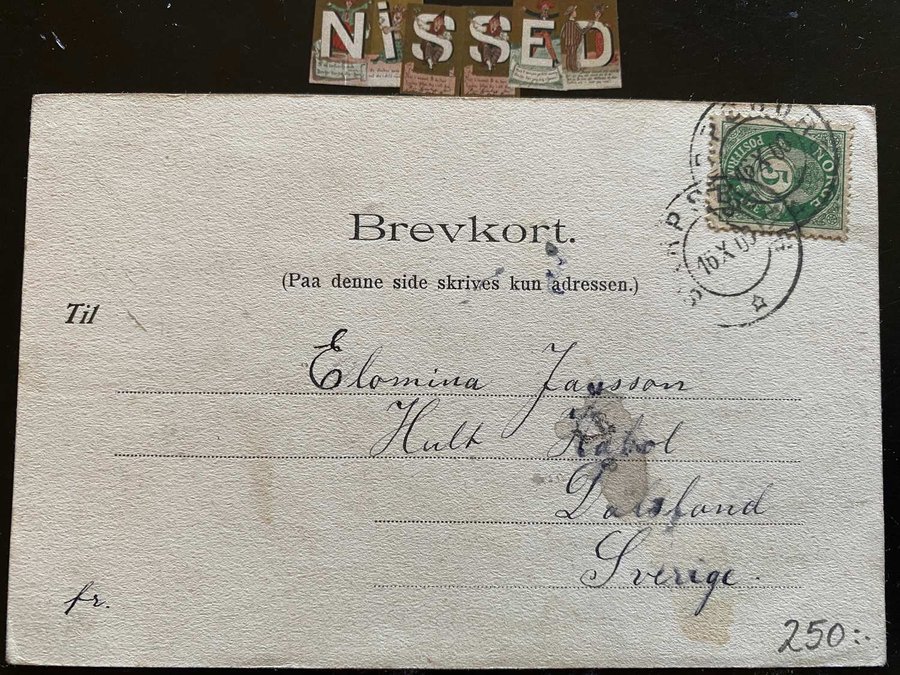 NiSSED
NORGE
POSTFRIM
5
16 X 09
Brevkort.
(Paa denne side skrives kun adressen.)
Til
Elomina Jansson
Hult Råbol
Dalsland
Sverige.
fr.
250:-